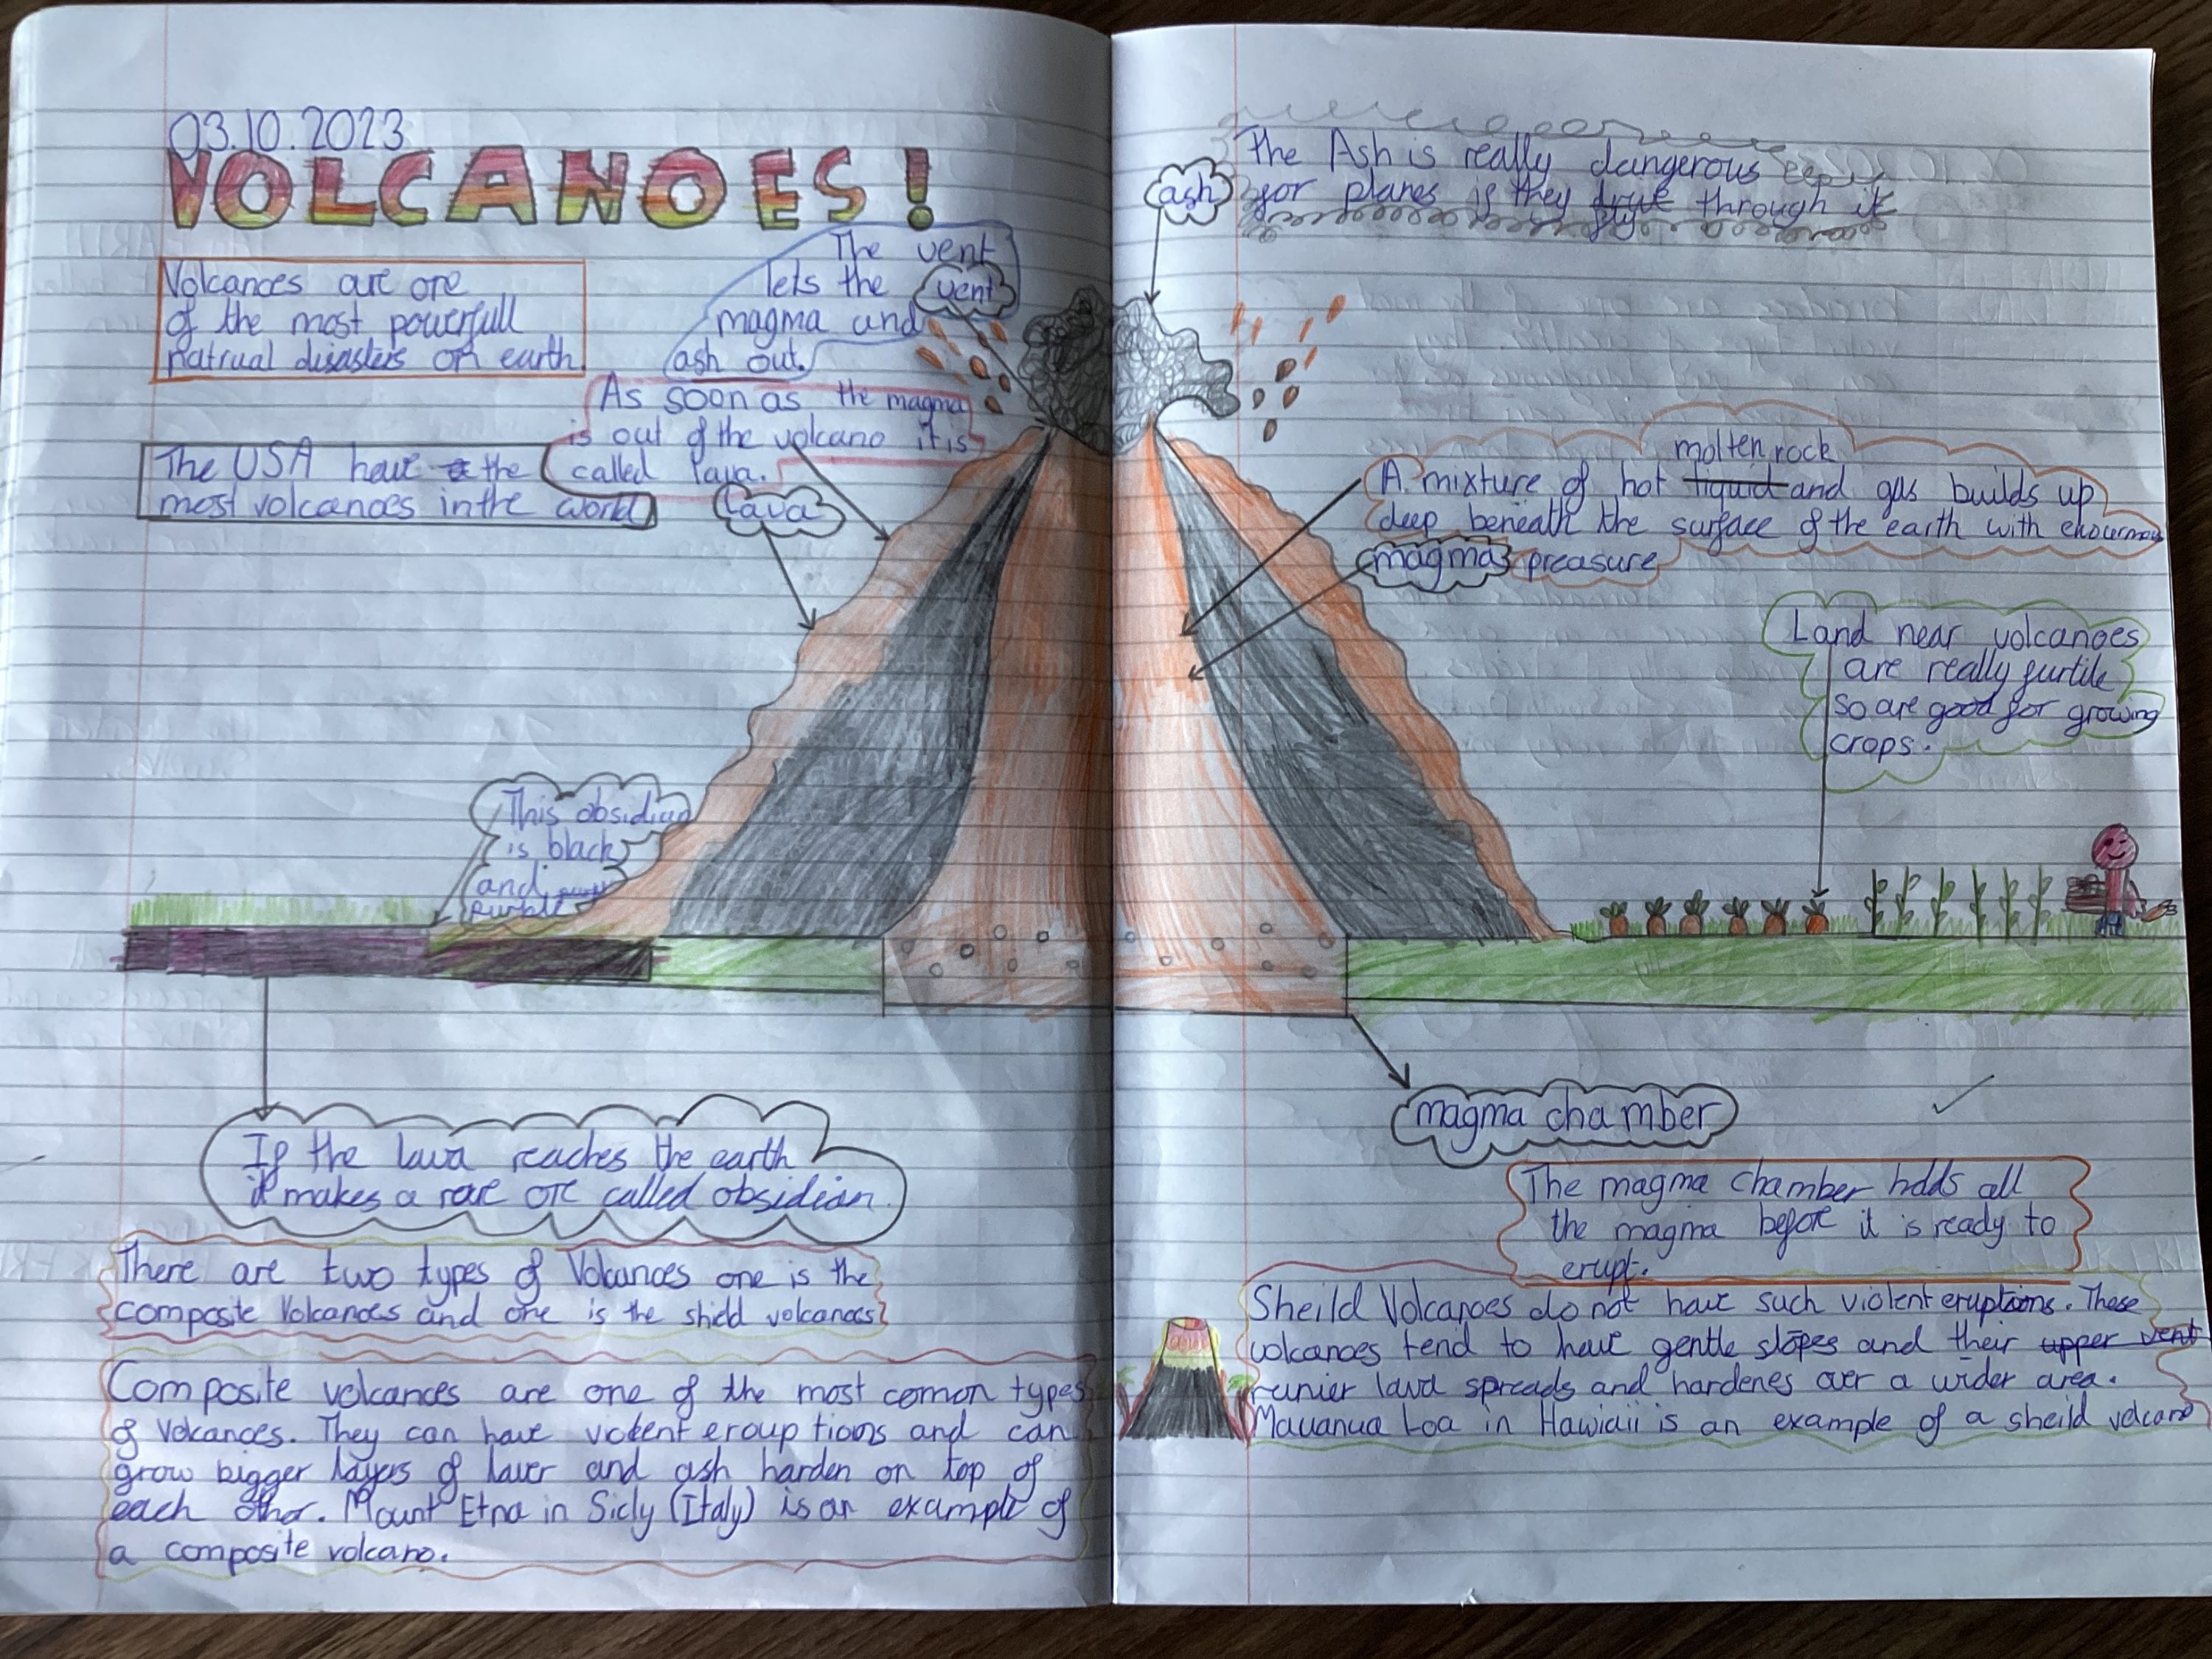 03.10.2023
VOLCANOES!
Volcanoes are one
of the most powerfull
natrual disasters on earth
The vent
lets the
magma and
ash out.
vent
As soon as the magma
is out of the volcano it is
called lava.
The USA have the
most volcanoes in the world
lava
This obsidian
is black
and
purple
If the lava reaches the earth
it makes a rare ore called obsidian.
There are two types of Volcanoes one is the
composite Volcanoes and one is the shield volcanoes
Composite volcanoes are one of the most comon types
of Volcanoes. They can have violent erouptions and can
grow bigger layers of laver and ash harden on top of
each other. Mount Etna in Sicly (Italy) is an example of
a composite volcano.
ash
The Ash is really dangerous
for planes if they drive through it
fly
molten rock
A mixture of hot liquid and gas builds up
deep beneath the surface of the earth with
preasure
magma
Land near volcanoes
are really furtile
so are good for growing
crops.
magma chamber
The magma chamber holds all
the magma before it is ready to
erupt.
Sheild Volcanoes do not have such violent eruptions. These
volcanoes tend to have gentle slopes and their upper vent
runier lava spreads and hardenes over a wider area.
Mauanua Loa in Hawiaii is an example of a sheild volcano